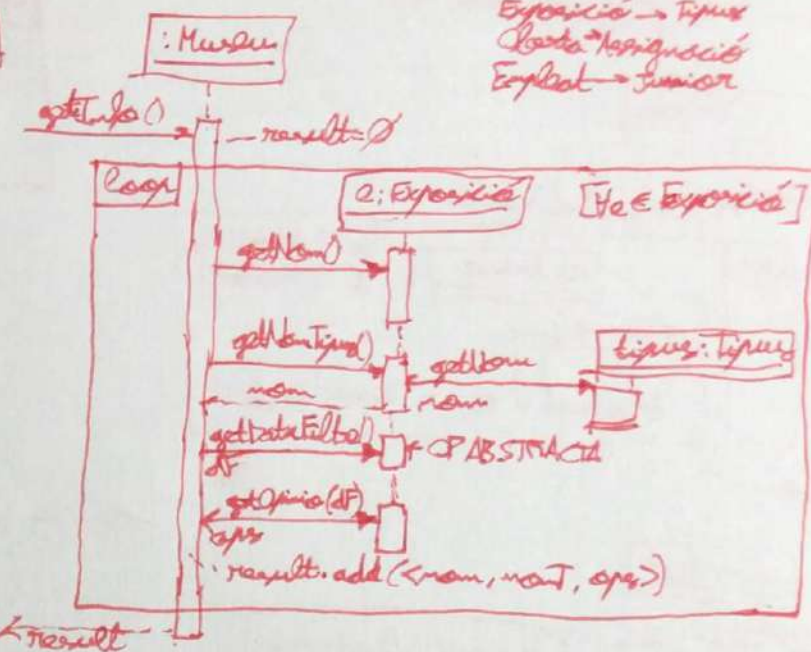 Exposició → Tipus
→ Assignació
Empleat → Junior
: Museu
getInfo()
result = ∅
loop
e: Exposició
[∀e ∈ Exposició]
getNom()
getNomTipus()
getNom
tipus: Tipus
nom
nom
getDataFiltre()
← OP ABSTRACTA
dF
getOpinio(dF)
ops
result.add(<nom, nomT, ops>)
result